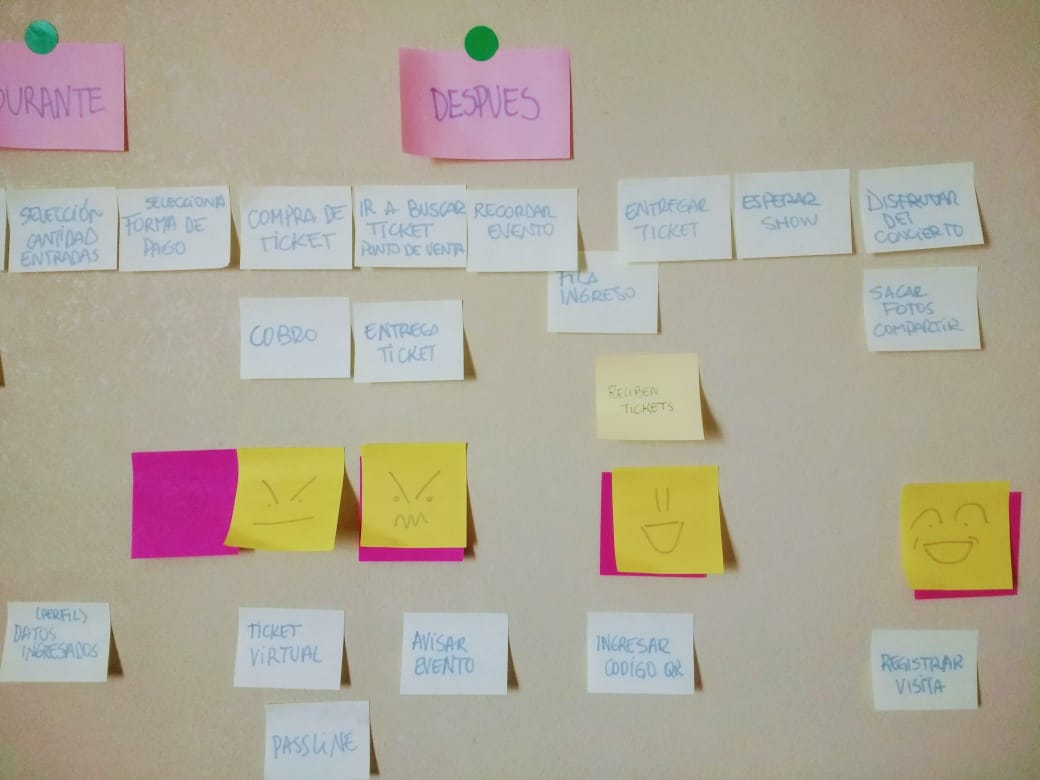 DURANTE
DESPUES
SELECCIÓN
CANTIDAD
ENTRADAS
SELECCIONA
FORMA DE
PAGO
COMPRA DE
TICKET
IR A BUSCAR
TICKET
PUNTO DE VENTA
RECORDAR
EVENTO
ENTREGAR
TICKET
ESPERAR
SHOW
DISFRUTAR
DEL
CONCIERTO
FILA
INGRESO
COBRO
ENTREGA
TICKET
SACAR
FOTOS
COMPARTIR
RECIBEN
TICKETS
(PERFIL)
DATOS
INGRESADOS
TICKET
VIRTUAL
AVISAR
EVENTO
INGRESAR
CODIGO QR
REGISTRAR
VISITA
PASSLINE